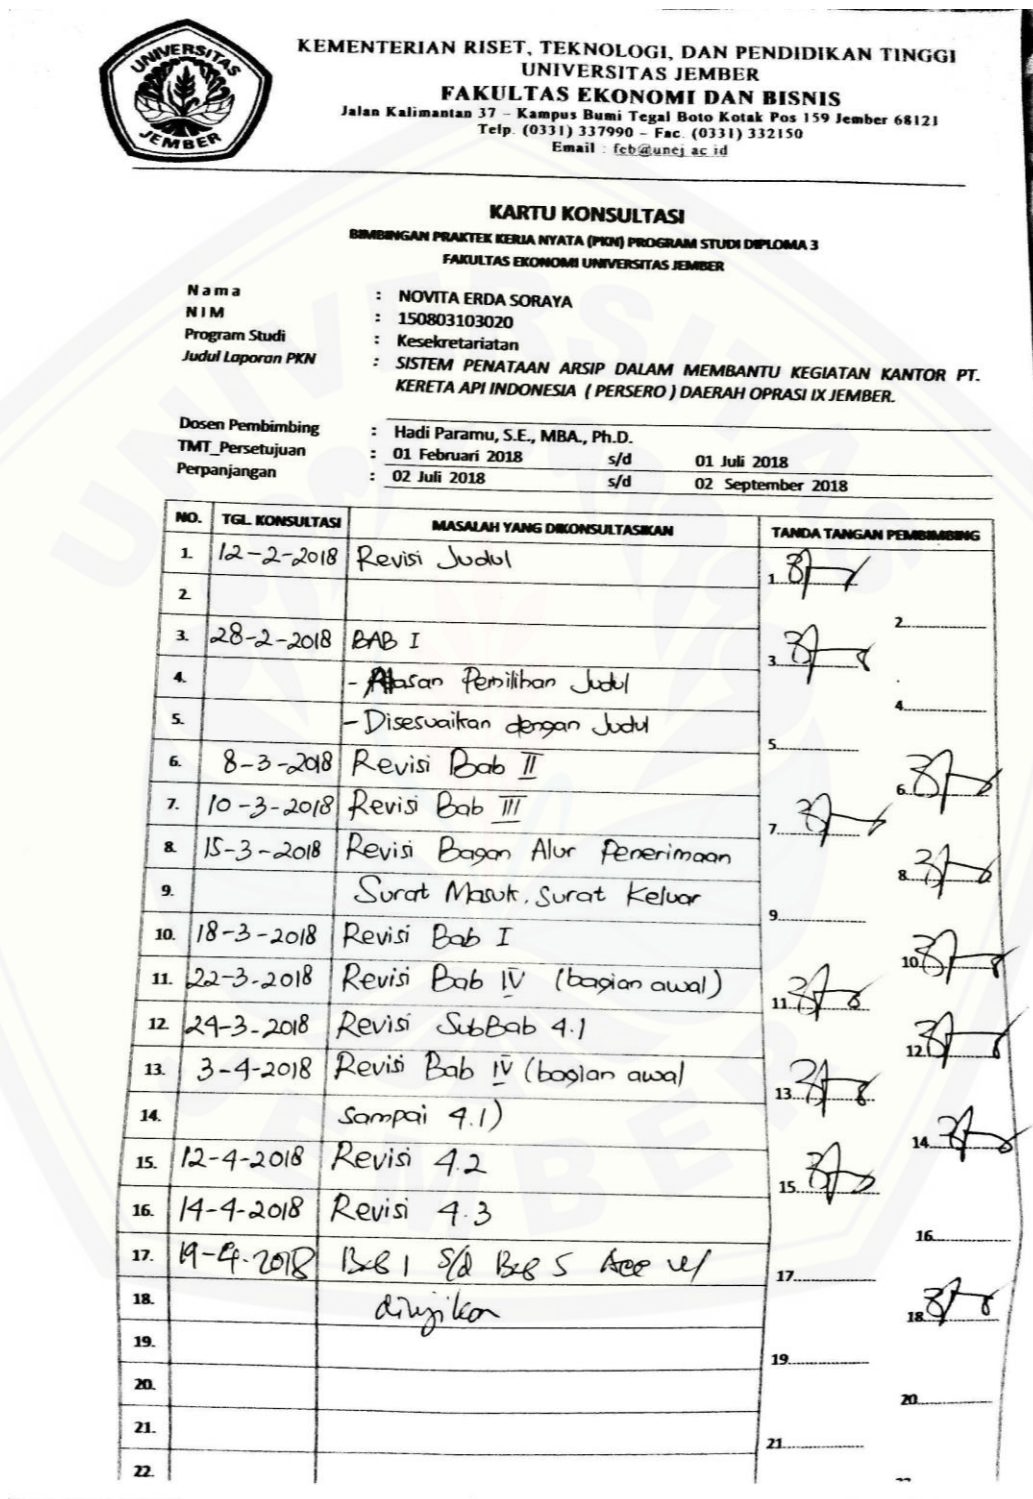 UNIVERSITAS
JEMBER
KEMENTERIAN RISET, TEKNOLOGI, DAN PENDIDIKAN TINGGI
UNIVERSITAS JEMBER
FAKULTAS EKONOMI DAN BISNIS
Jalan Kalimantan 37 – Kampus Bumi Tegal Boto Kotak Pos 159 Jember 68121
Telp. (0331) 337990 – Fac. (0331) 332150
Email : feb@unej.ac.id
KARTU KONSULTASI
BIMBINGAN PRAKTEK KERJA NYATA (PKN) PROGRAM STUDI DIPLOMA 3
FAKULTAS EKONOMI UNIVERSITAS JEMBER
Nama : NOVITA ERDA SORAYA
NIM : 150803103020
Program Studi : Kesekretariatan
Judul Laporan PKN : SISTEM PENATAAN ARSIP DALAM MEMBANTU KEGIATAN KANTOR PT.
KERETA API INDONESIA ( PERSERO ) DAERAH OPRASI IX JEMBER.
Dosen Pembimbing : Hadi Paramu, S.E., MBA., Ph.D.
TMT_Persetujuan : 01 Februari 2018 s/d 01 Juli 2018
Perpanjangan : 02 Juli 2018 s/d 02 September 2018
NO. TGL. KONSULTASI MASALAH YANG DIKONSULTASIKAN TANDA TANGAN PEMBIMBING
1. 12-2-2018 Revisi Judul 1.
2. 2.
3. 28-2-2018 BAB I 3.
4. - Alasan Pemilihan Judul 4.
5. - Disesuaikan dengan Judul 5.
6. 8-3-2018 Revisi Bab II 6.
7. 10-3-2018 Revisi Bab III 7.
8. 15-3-2018 Revisi Bagan Alur Penerimaan 8.
9. Surat Masuk, Surat Keluar 9.
10. 18-3-2018 Revisi Bab I 10.
11. 22-3-2018 Revisi Bab IV (bagian awal) 11.
12. 24-3-2018 Revisi SubBab 4.1 12.
13. 3-4-2018 Revisi Bab IV (bagian awal 13.
14. Sampai 4.1) 14.
15. 12-4-2018 Revisi 4.2 15.
16. 14-4-2018 Revisi 4.3 16.
17. 19-4-2018 Bab 1 s/d Bab 5 Acc u/ 17.
18. diujikan 18.
19. 19.
20. 20.
21. 21.
22.